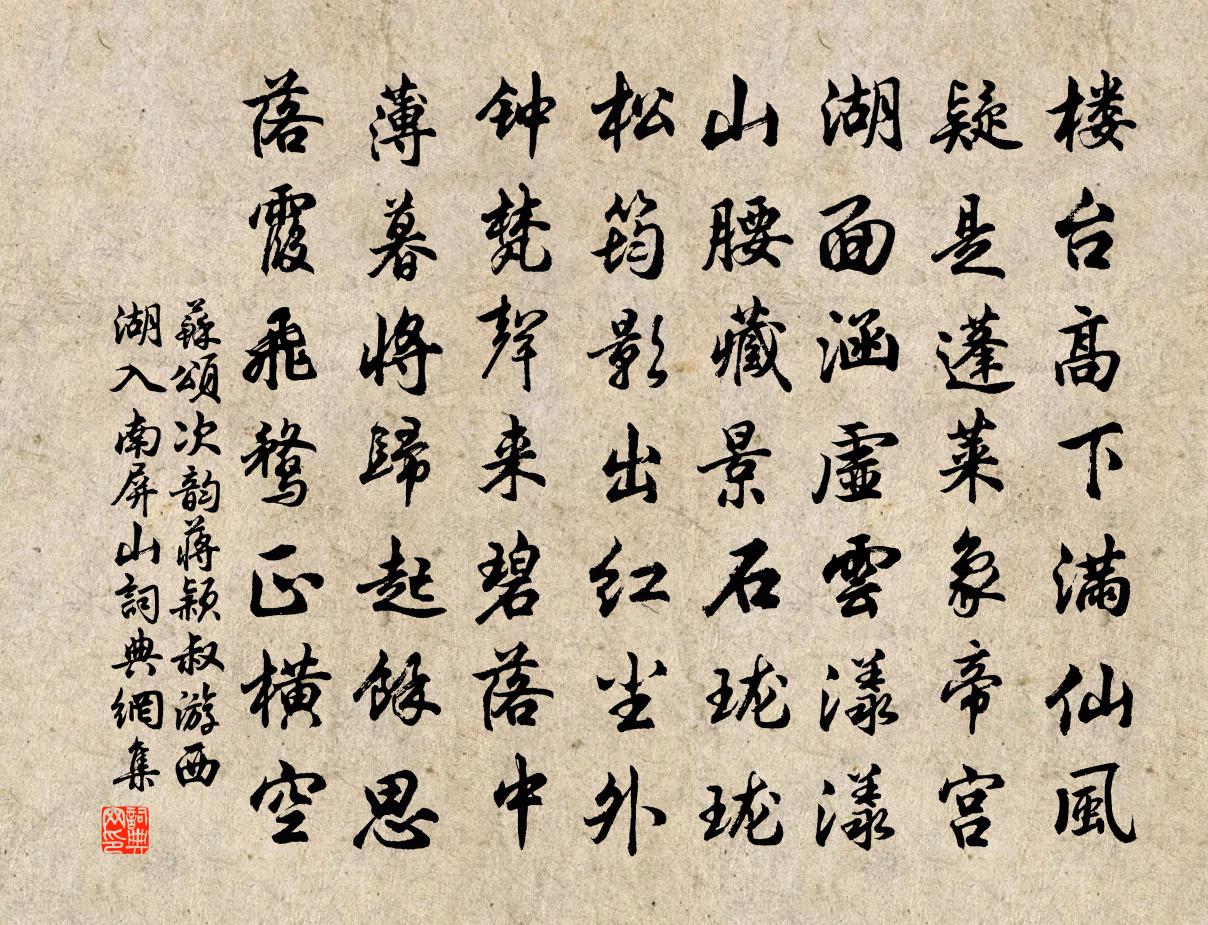 楼台高下满仙風
疑是蓬莱象帝宫
湖面涵虛雲漾漾
山腰藏景石珑珑
松筠影出红尘外
钟梵聲来碧落中
薄暮将歸起餘思
落霞飛鹜正横空
蘇頌次韵蒋颖叔游西
湖入南屏山詞典網集
詞典
网印